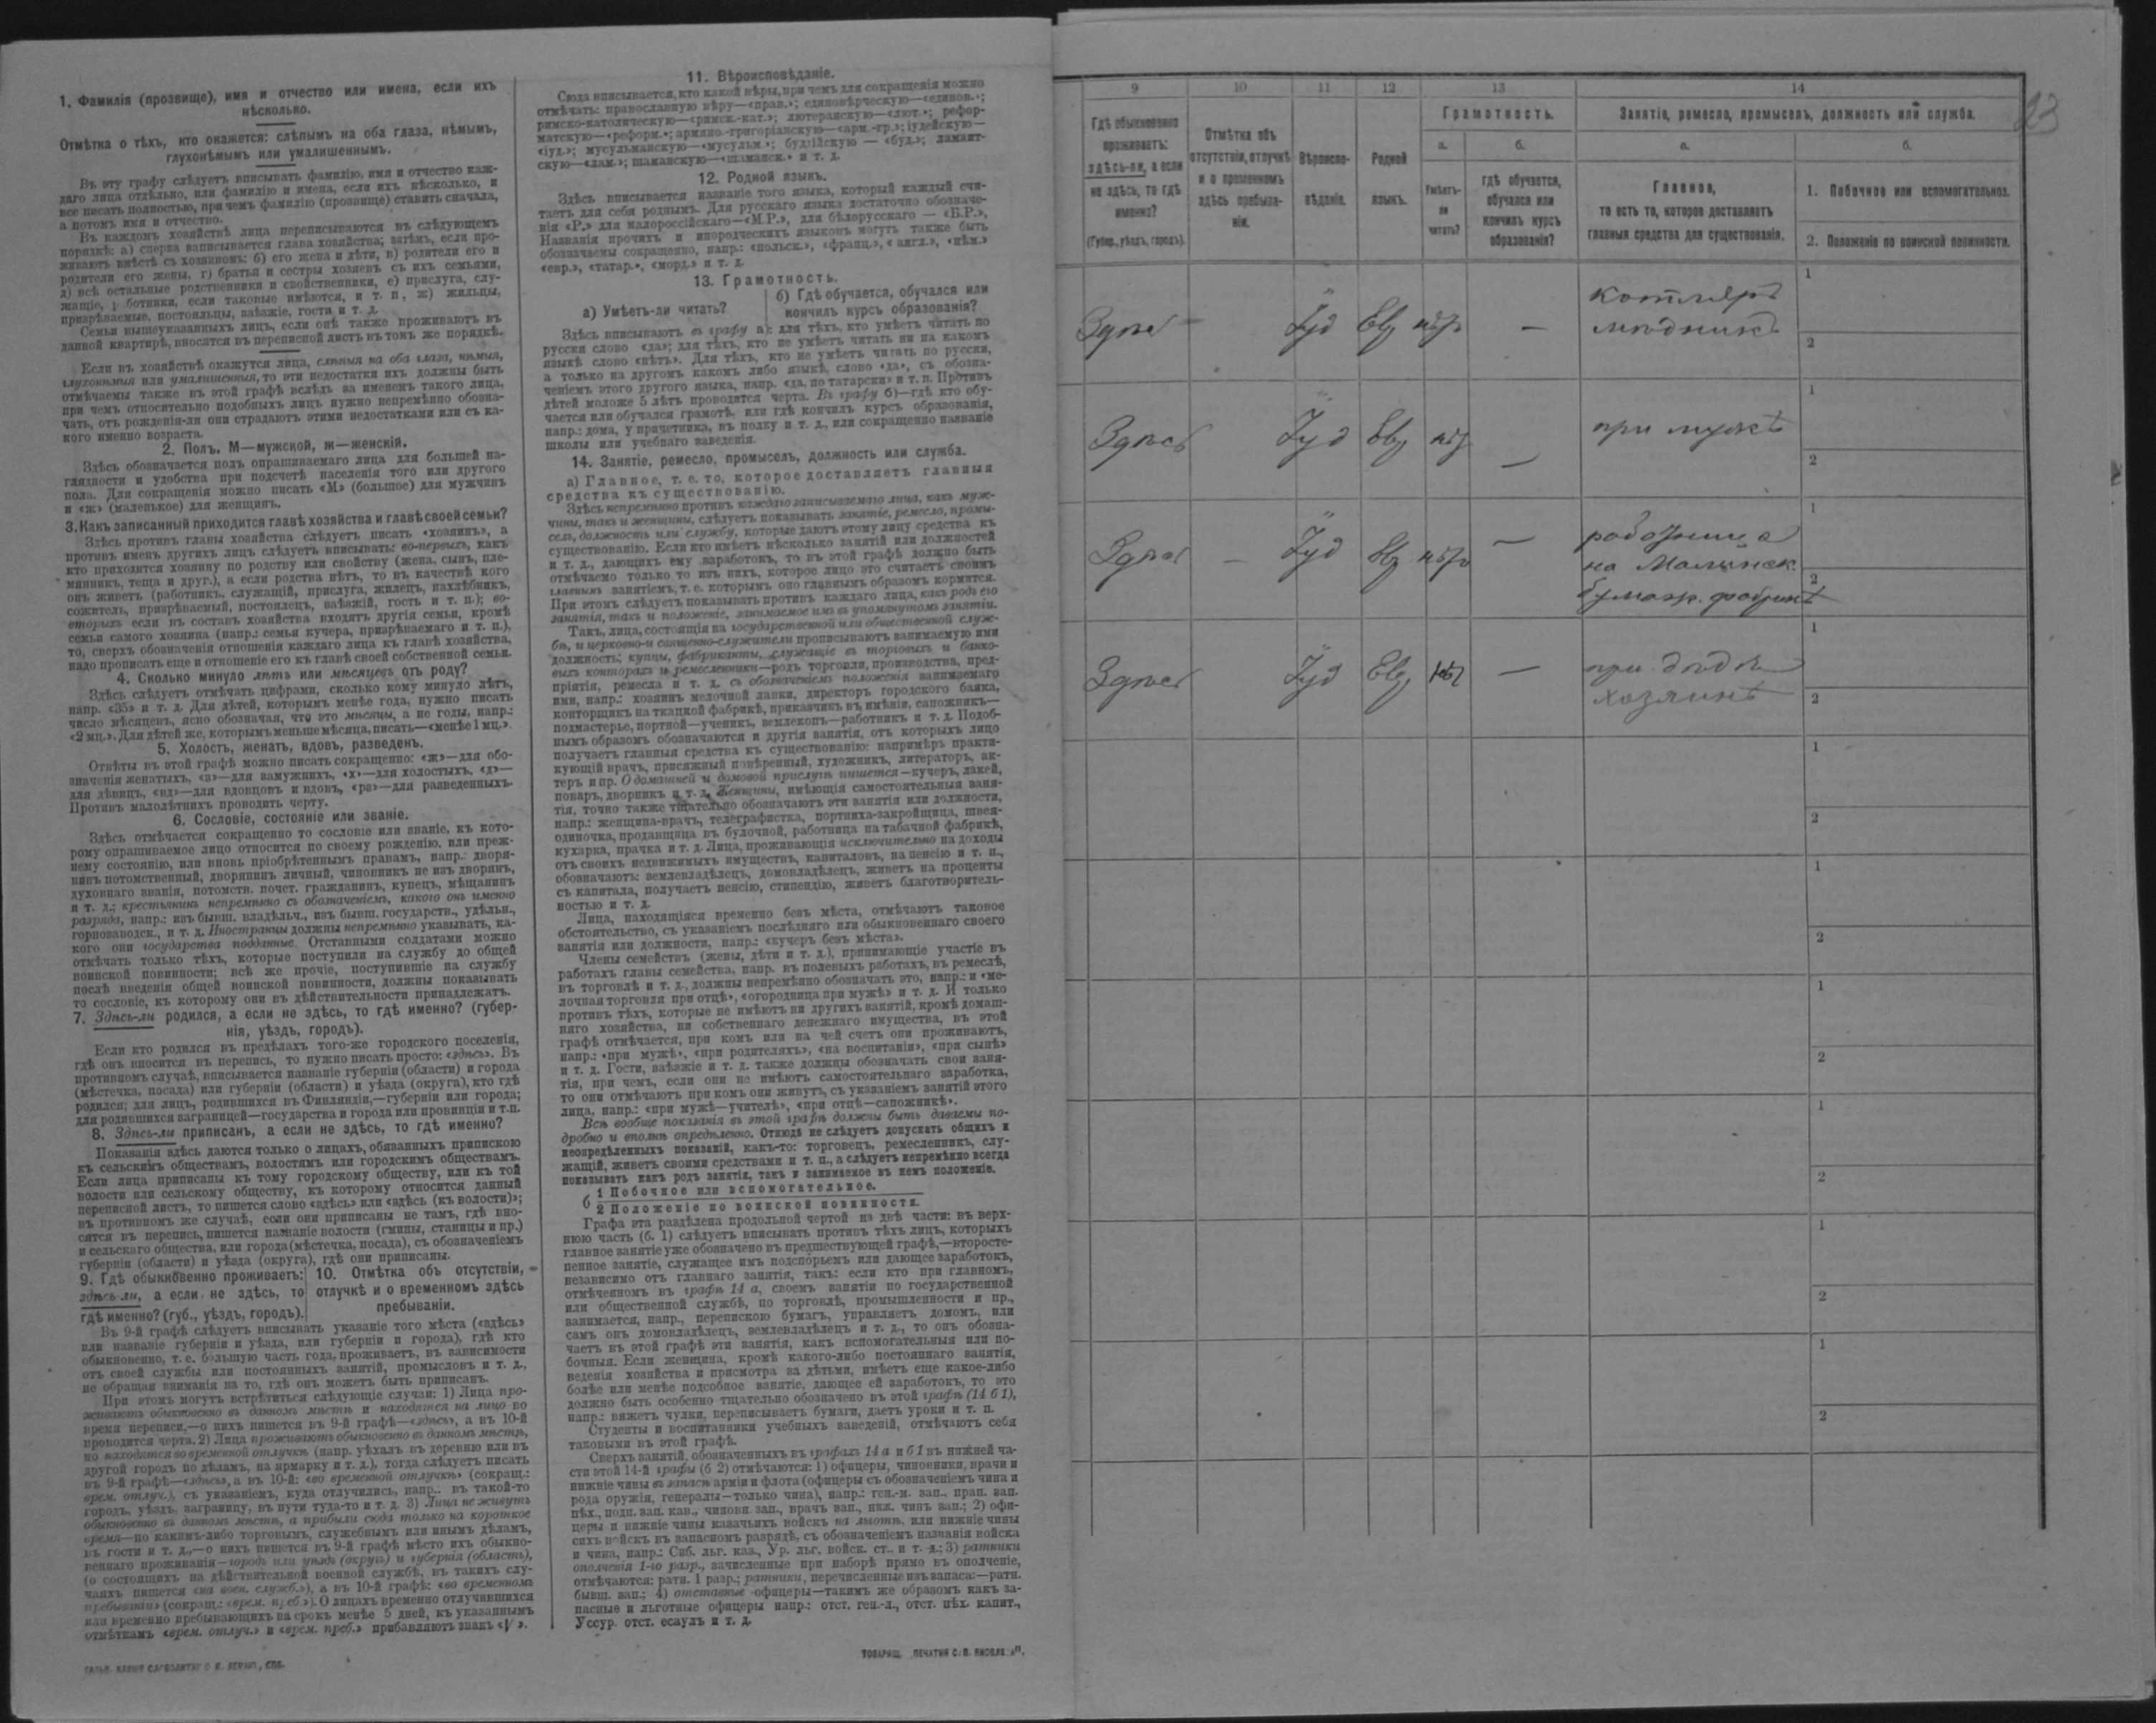 1. Фамилія (прозвище), имя и отчество или имена, если ихъ
нѣсколько.
Отмѣтка о тѣхъ, кто окажется: слѣпымъ на оба глаза, нѣмымъ,
глухонѣмымъ или умалишеннымъ.
Въ эту графу слѣдуетъ вписывать фамилію, имя и отчество каж-
даго лица отдѣльно, или фамилію и имена, если ихъ нѣсколько, и
все писать полностью, при чемъ фамилію (прозвище) ставить сначала,
а потомъ имя и отчество.
Въ каждомъ хозяйствѣ лица переписываются въ слѣдующемъ
порядкѣ: а) сперва записывается глава хозяйства; затѣмъ, если про-
живаютъ вмѣстѣ съ хозяиномъ: б) его жена и дѣти, в) родители его и
родители его жены, г) братья и сестры хозяевъ съ ихъ семьями,
д) всѣ остальные родственники и свойственники, е) прислуга, слу-
жащіе, работники, если таковые имѣются, и т. п., ж) жильцы,
призрѣваемые, постояльцы, заѣзжіе, гости и т. д.
Семьи вышеуказанныхъ лицъ, если онѣ также проживаютъ въ
данной квартирѣ, вносятся въ переписной листъ въ томъ же порядкѣ.
Если въ хозяйствѣ окажутся лица, слѣпыя на оба глаза, нѣмыя,
глухонѣмыя или умалишенныя, то эти недостатки ихъ должны быть
отмѣчаемы также въ этой графѣ вслѣдъ за именемъ такого лица,
при чемъ относительно подобныхъ лицъ нужно непремѣнно обозна-
чать, отъ рожденія-ли они страдаютъ этими недостатками или съ ка-
кого именно возраста.
2. Полъ. М—мужской, ж—женскій.
Здѣсь обозначается полъ опрашиваемаго лица для большей на-
глядности и удобства при подсчетѣ населенія того или другого
пола. Для сокращенія можно писать «М» (большое) для мужчинъ
и «ж» (маленькое) для женщинъ.
3. Какъ записанный приходится главѣ хозяйства и главѣ своей семьи?
Здѣсь противъ главы хозяйства слѣдуетъ писать «хозяинъ», а
противъ именъ другихъ лицъ слѣдуетъ вписывать: во-первыхъ, какъ
кто приходится хозяину по родству или свойству (жена, сынъ, пле-
мянникъ, теща и друг.), а если родства нѣтъ, то въ качествѣ кого
онъ живетъ (работникъ, служащій, прислуга, жилецъ, нахлѣбникъ,
сожитель, призрѣваемый, постоялецъ, заѣзжій, гость и т. п.); во-
вторыхъ если въ составъ хозяйства входятъ другія семьи, кромѣ
семьи самого хозяина (напр.: семья кучера, призрѣваемаго и т. п.),
то, сверхъ обозначенія отношенія каждаго лица къ главѣ хозяйства,
надо прописать еще и отношеніе его къ главѣ своей собственной семьи.
4. Сколько минуло лѣтъ или мѣсяцевъ отъ роду?
Здѣсь слѣдуетъ отмѣчать цифрами, сколько кому минуло лѣтъ,
напр. «35» и т. д. Для дѣтей, которымъ менѣе года, нужно писать
число мѣсяцевъ, ясно обозначая, что это мѣсяцы, а не годы, напр.:
«2 мц.». Для дѣтей же, которымъ меньше мѣсяца, писать—«менѣе 1 мц.».
5. Холостъ, женатъ, вдовъ, разведенъ.
Отвѣты въ этой графѣ можно писать сокращенно: «ж»—для обо-
значенія женатыхъ, «з»—для замужнихъ, «х»—для холостыхъ, «д»—
для дѣвицъ, «вд»—для вдовцовъ и вдовъ, «рз»—для разведенныхъ.
Противъ малолѣтнихъ проводить черту.
6. Сословіе, состояніе или званіе.
Здѣсь отмѣчается сокращенно то сословіе или званіе, къ кото-
рому опрашиваемое лицо относится по своему рожденію, или преж-
нему состоянію, или вновь пріобрѣтеннымъ правамъ, напр.: дворя-
нинъ потомственный, дворянинъ личный, чиновникъ не изъ дворянъ,
духовнаго званія, потомств. почет. гражданинъ, купецъ, мѣщанинъ
и т. д.; крестьянинъ непремѣнно съ обозначеніемъ, какого онъ именно
разряда, напр.: изъ бывш. владѣльч., изъ бывш. государств., удѣльн.,
горнозаводск., и т. д. Иностранцы должны непремѣнно указывать, ка-
кого они государства подданные. Отставными солдатами можно
отмѣчать только тѣхъ, которые поступили на службу до общей
воинской повинности; всѣ же прочіе, поступившіе на службу
послѣ введенія общей воинской повинности, должны показывать
то сословіе, къ которому они въ дѣйствительности принадлежатъ.
7. Здѣсь-ли родился, а если не здѣсь, то гдѣ именно? (губер-
нія, уѣздъ, городъ).
Если кто родился въ предѣлахъ того-же городского поселенія,
гдѣ онъ вносится въ перепись, то нужно писать просто: «здѣсь». Въ
противномъ случаѣ, вписывается названіе губерніи (области) и города
(мѣстечка, посада) или губерніи (области) и уѣзда (округа), кто гдѣ
родился; для лицъ, родившихся въ Финляндіи,—губерніи или города;
для родившихся заграницей—государства и города или провинціи и т.п.
8. Здѣсь-ли приписанъ, а если не здѣсь, то гдѣ именно?
Показанія здѣсь даются только о лицахъ, обязанныхъ припискою
къ сельскимъ обществамъ, волостямъ или городскимъ обществамъ.
Если лица приписаны къ тому городскому обществу, или къ той
волости или сельскому обществу, къ которому относится данный
переписной листъ, то пишется слово «здѣсь» или «здѣсь (къ волости)»;
въ противномъ же случаѣ, если они приписаны не тамъ, гдѣ вно-
сятся въ перепись, пишется названіе волости (гмины, станицы и пр.)
и сельскаго общества, или города (мѣстечка, посада), съ обозначеніемъ
губерніи (области) и уѣзда (округа), гдѣ они приписаны.
9. Гдѣ обыкновенно проживаетъ:
здѣсь-ли, а если не здѣсь, то
гдѣ именно? (губ., уѣздъ, городъ).
10. Отмѣтка объ отсутствіи,
отлучкѣ и о временномъ здѣсь
пребываніи.
Въ 9-й графѣ слѣдуетъ вписывать указаніе того мѣста («здѣсь»
или названіе губерніи и уѣзда, или губерніи и города), гдѣ кто
обыкновенно, т. е. большую часть года, проживаетъ, въ зависимости
отъ своей службы или постоянныхъ занятій, промысловъ и т. д.,
не обращая вниманія на то, гдѣ онъ можетъ быть приписанъ.
При этомъ могутъ встрѣтиться слѣдующіе случаи: 1) Лица про-
живаютъ обыкновенно въ данномъ мѣстѣ и находятся на лицо во
время переписи,—о нихъ пишется въ 9-й графѣ—«здѣсь», а въ 10-й
проводится черта. 2) Лица проживаютъ обыкновенно въ данномъ мѣстѣ,
но находятся во временной отлучкѣ (напр. уѣхалъ въ деревню или въ
другой городъ по дѣламъ, на ярмарку и т. д.), тогда слѣдуетъ писать
въ 9-й графѣ—«здѣсь», а въ 10-й: «во временной отлучкѣ» (сокращ.:
врем. отлуч.), съ указаніемъ, куда отлучились, напр.: въ такой-то
городъ, уѣздъ, заграницу, въ пути туда-то и т. д. 3) Лица не живутъ
обыкновенно въ данномъ мѣстѣ, а прибыли сюда только на короткое
время—по какимъ-либо торговымъ, служебнымъ или инымъ дѣламъ,
въ гости и т. д.,—о нихъ пишется въ 9-й графѣ мѣсто ихъ обыкно-
веннаго проживанія—городъ или уѣздъ (округъ) и губернія (область),
(о состоящихъ на дѣйствительной военной службѣ, въ такихъ слу-
чаяхъ пишется «на воен. службѣ»), а въ 10-й графѣ: «во временномъ
пребываніи» (сокращ.: «врем. преб.»). О лицахъ временно отлучившихся
или временно пребывающихъ на срокъ менѣе 5 дней, къ указаннымъ
отмѣткамъ «врем. отлуч.» и «врем. преб.» прибавляютъ знакъ «V».
11. Вѣроисповѣданіе.
Сюда вписывается, кто какой вѣры, при чемъ для сокращенія можно
отмѣчать: православную вѣру—«прав.»; единовѣрческую—«единов.»;
римско-католическую—«римск.-кат.»; лютеранскую—«лют.»; рефор-
матскую—«реформ.»; армяно.-григоріанскую—«арм.-гр.»; іудейскую—
«іуд.»; мусульманскую—«мусульм.»; буддійскую — «буд.»; ламаит-
скую—«лам.»; шаманскую—«шаманск.» и т. д.
12. Родной языкъ.
Здѣсь вписывается названіе того языка, который каждый счи-
таетъ для себя роднымъ. Для русскаго языка достаточно обозначе-
нія «Р.» для малороссійскаго—«М.Р.», для бѣлорусскаго — «Б.Р.»,
Названія прочихъ и инородческихъ языковъ могутъ также быть
обозначаемы сокращенно, напр.: «польск.», «франц.», «англ.», «нѣм.»
«евр.», «татар.», «морд.» и т. д.
13. Грамотность.
а) Умѣетъ-ли читать?
б) Гдѣ обучается, обучался или
кончилъ курсъ образованія?
Здѣсь вписываютъ въ графу а): для тѣхъ, кто умѣетъ читать по
русски слово «да»; для тѣхъ, кто не умѣетъ читать ни на какомъ
языкѣ слово «нѣтъ». Для тѣхъ, кто не умѣетъ читать по русски,
а только на другомъ какомъ либо языкѣ, слово «да», съ обозна-
ченіемъ этого другого языка, напр. «да, по татарски» и т. п. Противъ
дѣтей моложе 5 лѣтъ проводится черта. Въ графу б)—гдѣ кто обу-
чается или обучался грамотѣ, или гдѣ кончилъ курсъ образованія,
напр.: дома, у причетника, въ полку и т. д., или сокращенно названіе
школы или учебнаго заведенія.
14. Занятіе, ремесло, промыселъ, должность или служба.
а) Главное, т. е. то, которое доставляетъ главныя
средства къ существованію.
Здѣсь непремѣнно противъ каждаго записываемаго лица, какъ муж-
чины, такъ и женщины, слѣдуетъ показывать занятіе, ремесло, промы-
селъ, должность или службу, которые даютъ этому лицу средства къ
существованію. Если кто имѣетъ нѣсколько занятій или должностей
и т. д., дающихъ ему заработокъ, то въ этой графѣ должно быть
отмѣчаемо только то изъ нихъ, которое лицо это считаетъ своимъ
главнымъ занятіемъ, т. е. которымъ оно главнымъ образомъ кормится.
При этомъ слѣдуетъ показывать противъ каждаго лица, какъ родъ его
занятія, такъ и положеніе, занимаемое имъ въ упомянутомъ занятіи.
Такъ, лица, состоящія на государственной или общественной служ-
бѣ, и церковно-и священно-служители прописываютъ занимаемую ими
должность; купцы, фабриканты, служащіе въ торговыхъ и банко-
выхъ конторахъ и ремесленники—родъ торговли, производства, пред-
пріятія, ремесла и т. д. съ обозначеніемъ положенія занимаемаго
ими, напр.: хозяинъ мелочной лавки, директоръ городского банка,
конторщикъ на ткацкой фабрикѣ, приказчикъ въ имѣніи, сапожникъ—
подмастерье, портной—ученикъ, землекопъ—работникъ и т. д. Подоб-
нымъ образомъ обозначаются и другія занятія, отъ которыхъ лицо
получаетъ главныя средства къ существованію: напримѣръ практи-
кующій врачъ, присяжный повѣренный, художникъ, литераторъ, ак-
теръ и пр. О домашней и домовой прислугѣ пишется—кучеръ, лакей,
поваръ, дворникъ и т. д. Женщины, имѣющія самостоятельныя заня-
тія, точно также тщательно обозначаютъ эти занятія или должности,
напр.: женщина-врачъ, телеграфистка, портниха-закройщица, швея-
одиночка, продавщица въ булочной, работница на табачной фабрикѣ,
кухарка, прачка и т. д. Лица, проживающія исключительно на доходы
отъ своихъ недвижимыхъ имуществъ, капиталовъ, на пенсію и т. п.,
обозначаютъ: землевладѣлецъ, домовладѣлецъ, живетъ на проценты
съ капитала, получаетъ пенсію, стипендію, живетъ благотворитель-
ностью и т. д.
Лица, находящіяся временно безъ мѣста, отмѣчаютъ таковое
обстоятельство, съ указаніемъ послѣдняго или обыкновеннаго своего
занятія или должности, напр.: «кучеръ безъ мѣста».
Члены семействъ (жены, дѣти и т. д.), принимающіе участіе въ
работахъ главы семейства, напр. въ полевыхъ работахъ, въ ремеслѣ,
въ торговлѣ и т. д., должны непремѣнно обозначать это, напр.: и «ме-
лочная торговля при отцѣ», «огородница при мужѣ» и т. д. И только
противъ тѣхъ, которые не имѣютъ ни другихъ занятій, кромѣ домаш-
няго хозяйства, ни собственнаго денежнаго имущества, въ этой
графѣ отмѣчается, при комъ или на чей счетъ они проживаютъ,
напр.: «при мужѣ», «при родителяхъ», «на воспитаніи», «при сынѣ»
и т. д. Гости, заѣзжіе и т. д. также должны обозначать свои заня-
тія, при чемъ, если они не имѣютъ самостоятельнаго заработка,
то они отмѣчаютъ при комъ они живутъ, съ указаніемъ занятій этого
лица, напр.: «при мужѣ—учителѣ», «при отцѣ—сапожникѣ».
Всѣ вообще показанія въ этой графѣ должны быть даваемы по-
дробно и вполнѣ опредѣленно. Отнюдь не слѣдуетъ допускать общихъ и
неопредѣленныхъ показаній, какъ-то: торговецъ, ремесленникъ, слу-
жащій, живетъ своими средствами и т. п., а слѣдуетъ непремѣнно всегда
показывать какъ родъ занятія, такъ и занимаемое въ немъ положеніе.
б 1 Побочное или вспомогательное.
2 Положеніе по воинской повинности.
Графа эта раздѣлена продольной чертой на двѣ части: въ верх-
нюю часть (б. 1) слѣдуетъ вписывать противъ тѣхъ лицъ, которыхъ
главное занятіе уже обозначено въ предшествующей графѣ,—второсте-
пенное занятіе, служащее имъ подспорьемъ или дающее заработокъ,
независимо отъ главнаго занятія, такъ: если кто при главномъ,
отмѣченномъ въ графѣ 14 а, своемъ занятіи по государственной
или общественной службѣ, по торговлѣ, промышленности и пр.,
занимается, напр., перепискою бумагъ, управляетъ домомъ, или
самъ онъ домовладѣлецъ, землевладѣлецъ и т. д., то онъ обозна-
чаетъ въ этой графѣ эти занятія, какъ вспомогательныя или по-
бочныя. Если женщина, кромѣ какого-либо постояннаго занятія,
веденія хозяйства и присмотра за дѣтьми, имѣетъ еще какое-либо
болѣе или менѣе подсобное занятіе, дающее ей заработокъ, то это
должно быть особенно тщательно обозначено въ этой графѣ (14 б 1),
напр.: вяжетъ чулки, переписываетъ бумаги, даетъ уроки и т. п.
Студенты и воспитанники учебныхъ заведеній, отмѣчаютъ себя
таковыми въ этой графѣ.
Сверхъ занятій, обозначенныхъ въ графахъ 14 а и б 1 въ нижней ча-
сти этой 14-й графы (б 2) отмѣчаются: 1) офицеры, чиновники, врачи и
нижніе чины въ запасѣ арміи и флота (офицеры съ обозначеніемъ чина и
рода оружія, генералы—только чина), напр.: ген.-м. зап., прап. зап.
пѣх., подп. зап. кав., чиновн. зап., врачъ зап., ниж. чинъ зап.; 2) офи-
церы и нижніе чины казачьихъ войскъ на льготѣ, или нижніе чины
сихъ войскъ въ запасномъ разрядѣ, съ обозначеніемъ названія войска
и чина, напр.: Сиб. льг. каз., Ур. льг. войск. ст., и т. д.; 3) ратники
ополченія 1-го разр., зачисленные при наборѣ прямо въ ополченіе,
отмѣчаются: ратн. 1 разр.; ратники, перечисленные изъ запаса:—ратн.
бывш. зап.; 4) отставные офицеры—такимъ же образомъ какъ за-
пасные и льготные офицеры напр.: отст. ген.-л., отст. пѣх. капит.,
Уссур. отст. есаулъ и т. д.
9 10 11 12 13 14
23
Гдѣ обыкновенно
проживаетъ:
здѣсь-ли, а если
не здѣсь, то гдѣ
именно?
(Губер., уѣздъ, городъ).
Отмѣтка объ
отсутствіи, отлучкѣ
и о временномъ
здѣсь пребыва-
ніи.
Вѣроиспо-
вѣданіе.
Родной
языкъ.
Грамотность.
а.
Умѣетъ-
ли
читать?
б.
гдѣ обучается,
обучался или
кончилъ курсъ
образованія?
Занятіе, ремесло, промыселъ, должность или служба.
а.
Главное,
то есть то, которое доставляетъ
главныя средства для существованія.
б.
1. Побочное или вспомогательное.
2. Положеніе по воинской повинности.
Здѣсь — Іуд Евр нѣт — котляръ
мѣдникъ
1
2
Здѣсь Іуд Евр нѣт — при мужѣ
1
2
Здѣсь — Іуд Евр нѣт — работница
на Малинск.
бумаж. фабрикѣ
1
2
Здѣсь Іуд Евр нѣт — при дѣдѣ
хозяинѣ
1
2
1
2
1
2
1
2
1
2
1
2
1
2